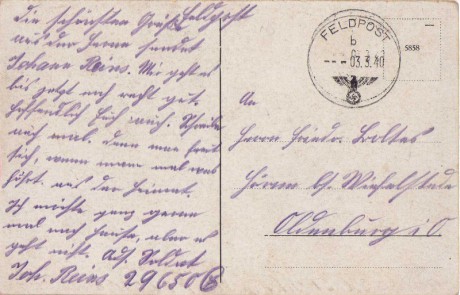 Die schönsten Grüße Feldpost
aus der Ferne sendet
Johann Reins. Mir geht es
bis jetzt noch recht gut.
Hoffentlich Euch auch. Schreibe
auch mal. Denn man freut
sich, wenn man mal was
hört aus der Heimat.
Ich möchte ganz gerne
mal nach Hause, aber es
geht nicht. Auf. Soldat
Joh. Reins 29650 B
FELDPOST
b
03.3.40
5858
An
Herrn Friedr. Boltes
Oldenburg i. O.